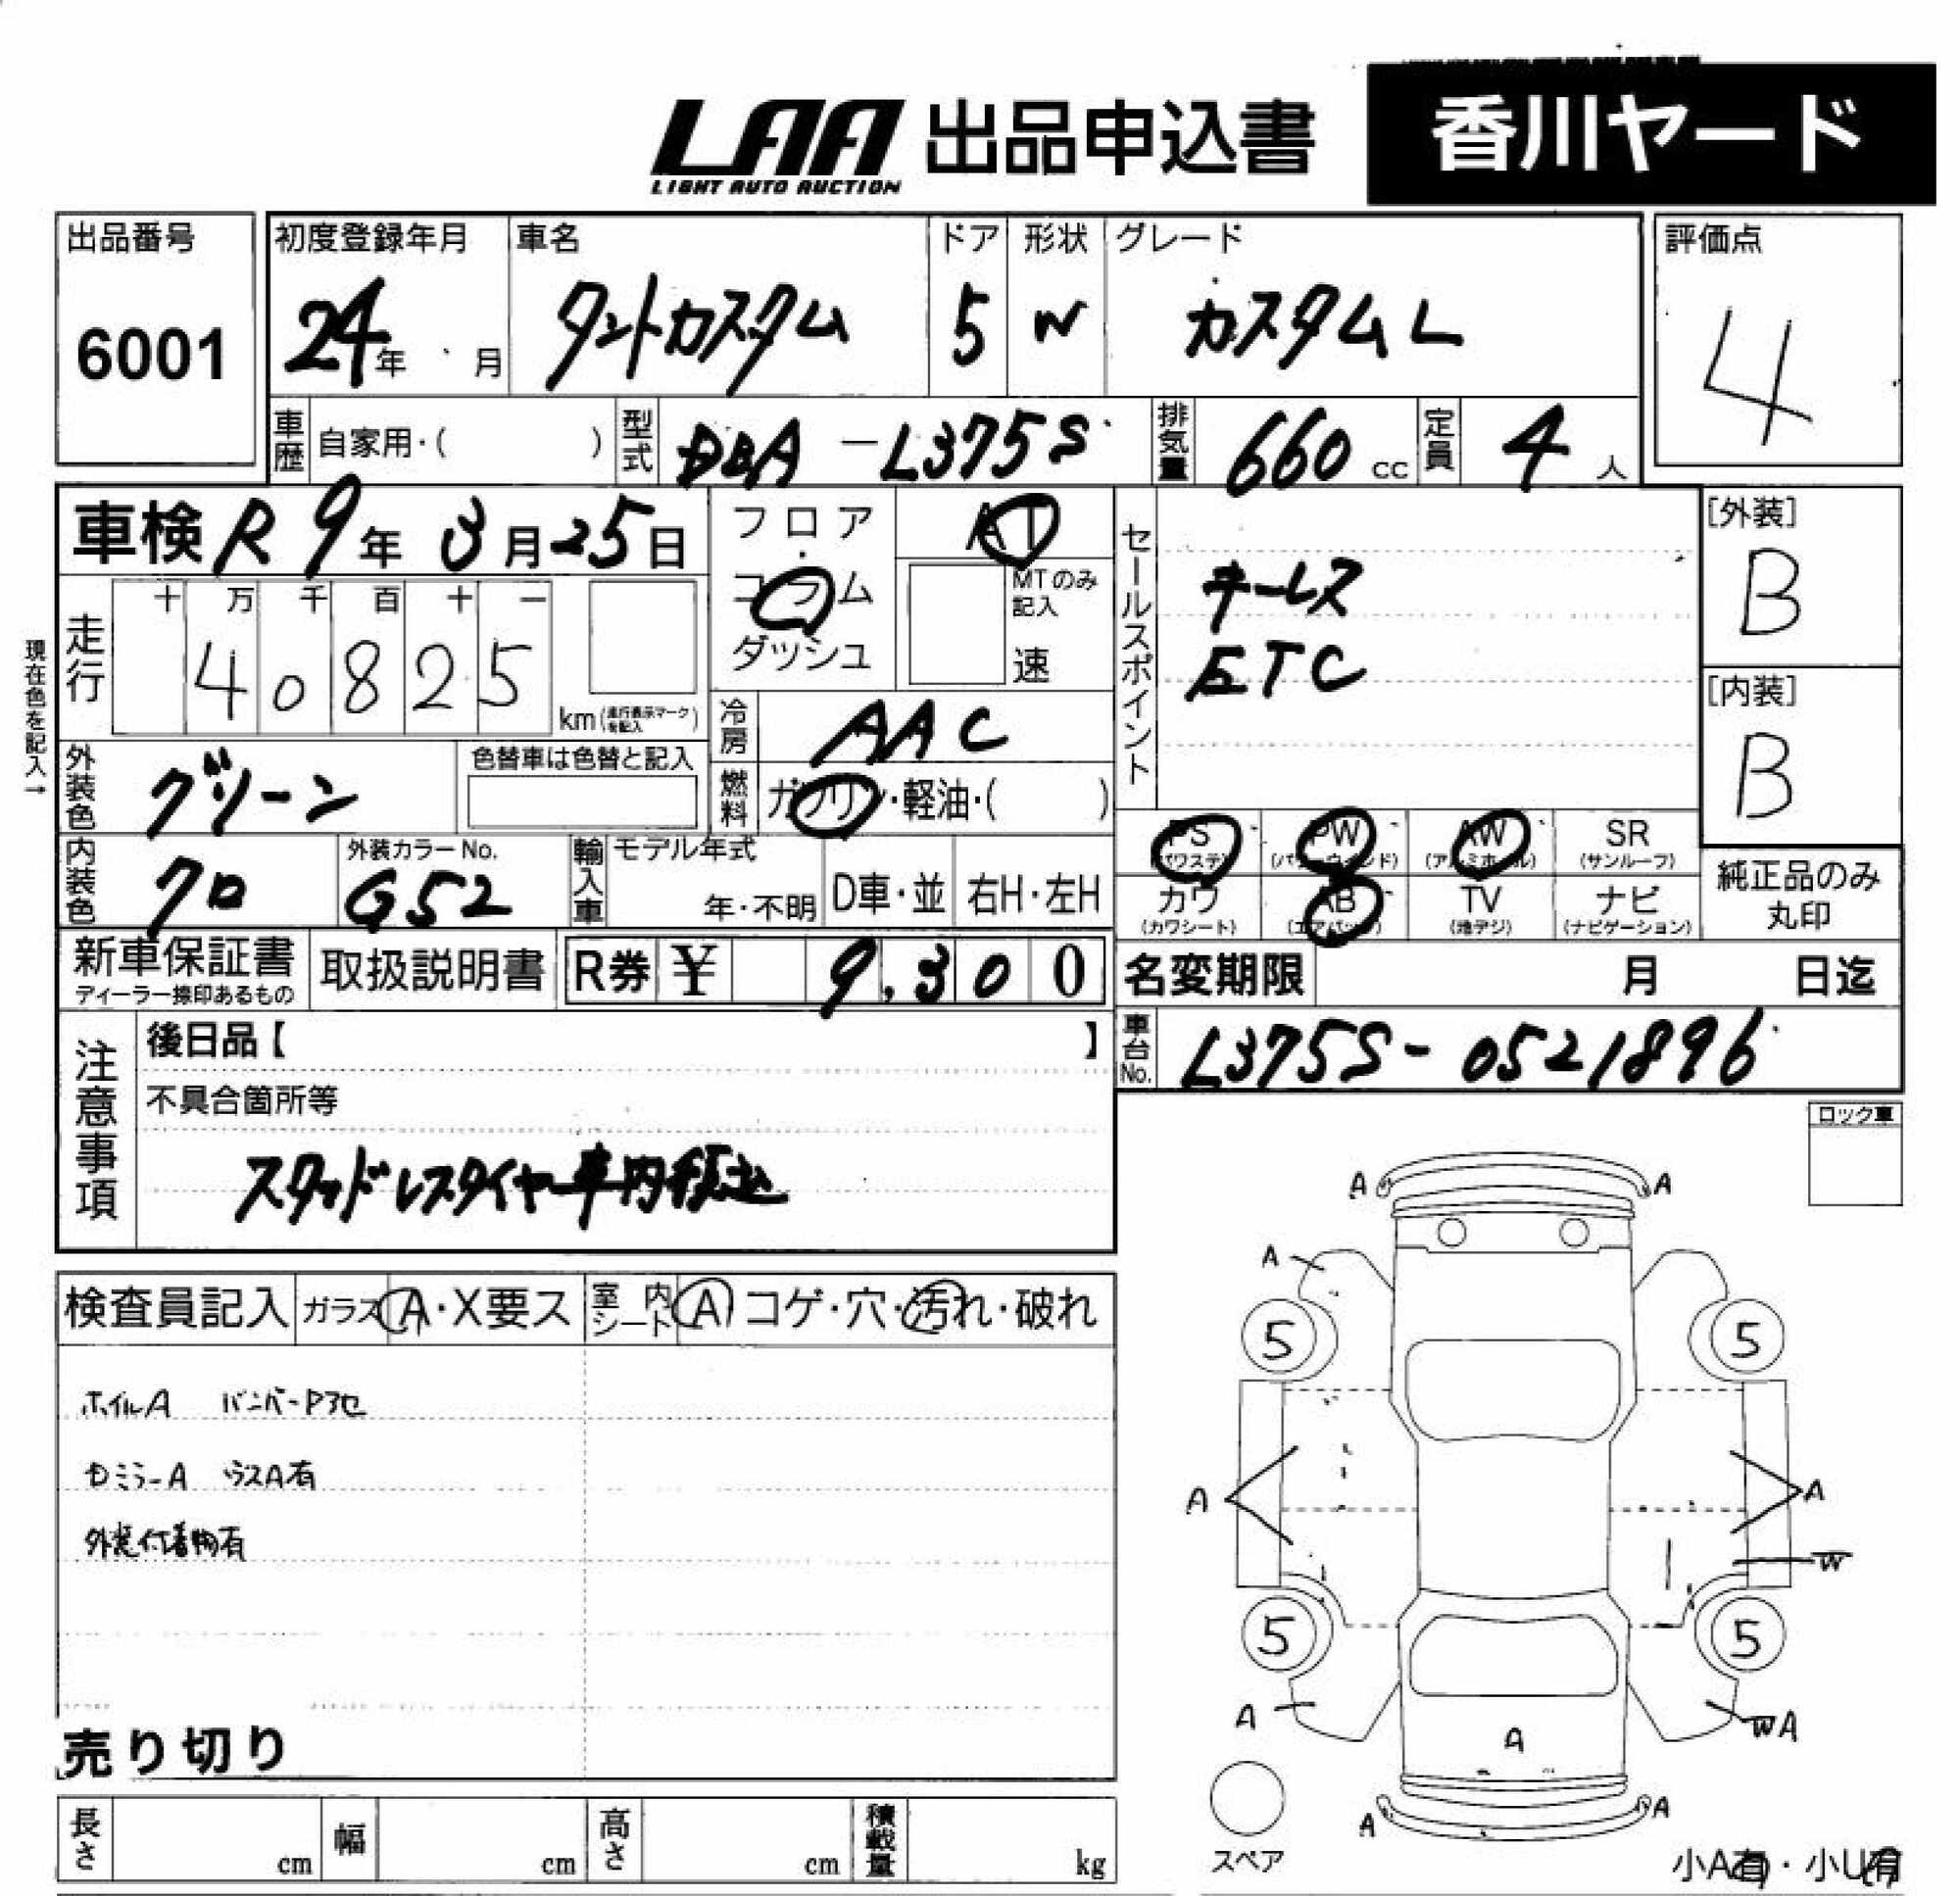 LAA 出品申込書 香川ヤード
LIGHT AUTO AUCTION
出品番号 初度登録年月 車名 ドア 形状 グレード 評価点
6001 24年 月 タントカスタム 5 W カスタムL 4
車歴 自家用・( ) 型式 DBA-L375S 排気量 660 cc 定員 4 人
車検 R9年 3月25日 フロア AT
コラム MTのみ記入
ダッシュ 速
セールスポイント
キーレス
ETC
[外装]
B
[内装]
B
走行 十 万 千 百 十 一
4 0 8 2 5
km(走行表示マークを記入)
現在色を記入→
冷房 AAC
外装色 グリーン 色替車は色替と記入
燃料 ガソリン・軽油・( )
内装色 クロ 外装カラーNo. G52
輸入車 モデル年式 年・不明 D車・並 右H・左H
PS(パワステ) PW(パワーウィンド) AW(アルミホイール) SR(サンルーフ)
カワ(カワシート) AB(エアバッグ) TV(地デジ) ナビ(ナビゲーション)
純正品のみ
丸印
新車保証書 取扱説明書 R券 ¥ 9,300
ディーラー捺印あるもの
名変期限 月 日迄
車台No. L375S-0521896
注意事項
後日品【 】
不具合箇所等
スタッドレスタイヤ車内積込
ロック車
検査員記入 ガラス A・X要ス 室内シート A コゲ・穴・汚れ・破れ
ホイルA バンパーP3セ
Dミラー A ラスA有
外装付着物有
売り切り
長さ cm 幅 cm 高さ cm 積載量 kg
A A
A
5 5
A A
W
5 5
A WA
A
A A
スペア
小A有・小U有